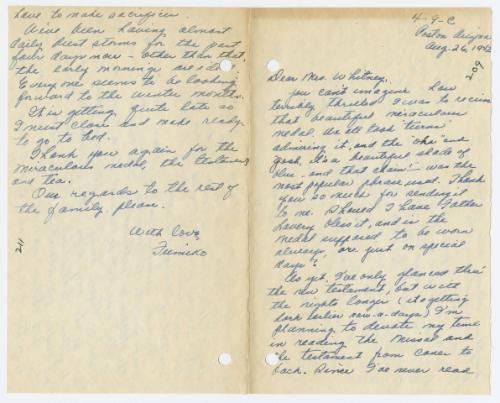 4-9-C
Poston Arizona
Aug. 26, 1942
209
Dear Mrs. Whitney,
You can't imagine how
terribly thrilled I was to receive
that beautiful miraculous
medal. We all took "turns"
admiring it, and the "ohs" and
gosh, it's a beautiful shade of
blue - and that chain" - was the
most popular phrase used. Thank
you so much for sending it
to me. Should I have Father
Lavery bless it, and is the
medal supposed to be worn
always, or just on special
days?
As yet, I've only glanced thru
the new testament, but with
the nights longer (it's getting
dark earlier now-a-days) I'm
planning to devote my time
in reading the Missal and
the testament from cover to
back. Since I've never read
have to make sacrifices.
We've been having almost
daily dust storms for the past
four days now - other than that,
the early mornings are ideal.
Everyone seems to be looking
forward to the winter months.
It is getting quite late so
I must close and make ready
to go to bed.
Thank you again for the
miraculous medal, the testament
and tea.
Our regards to the rest of
the family, please.
With love,
Fumiko
211